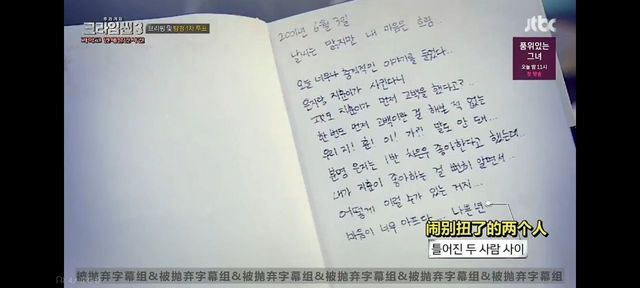 추리게임
크라임씬3
브리핑 및 탐정 1차 투표
jtbc
품위있는
그녀
오늘 밤 11시
첫 방송
2001년 6월 3일
날씨는 맑지만 내 마음은 흐림...
오늘 너무나 충격적인 이야기를 들었다...
은지랑 지훈이가 사귄다니
그것도 지훈이가 먼저 고백을 했다고?...
한번도 먼저 고백이란 걸 해본 적 없는
우리 지! 훈! 이! 가?! 말도 안 돼...
분명 은지는 1반 차은우 좋아한다고 했는데...
내가 지훈이 좋아하는 걸 뻔히 알면서...
어떻게 이럴 수가 있는 거지...
마음이 너무 아프다... 나쁜 년
闹别扭了的两个人
틀어진 두 사람 사이
被抛弃字幕组&被抛弃字幕组&被抛弃字幕组&被抛弃字幕组&被抛弃字幕组